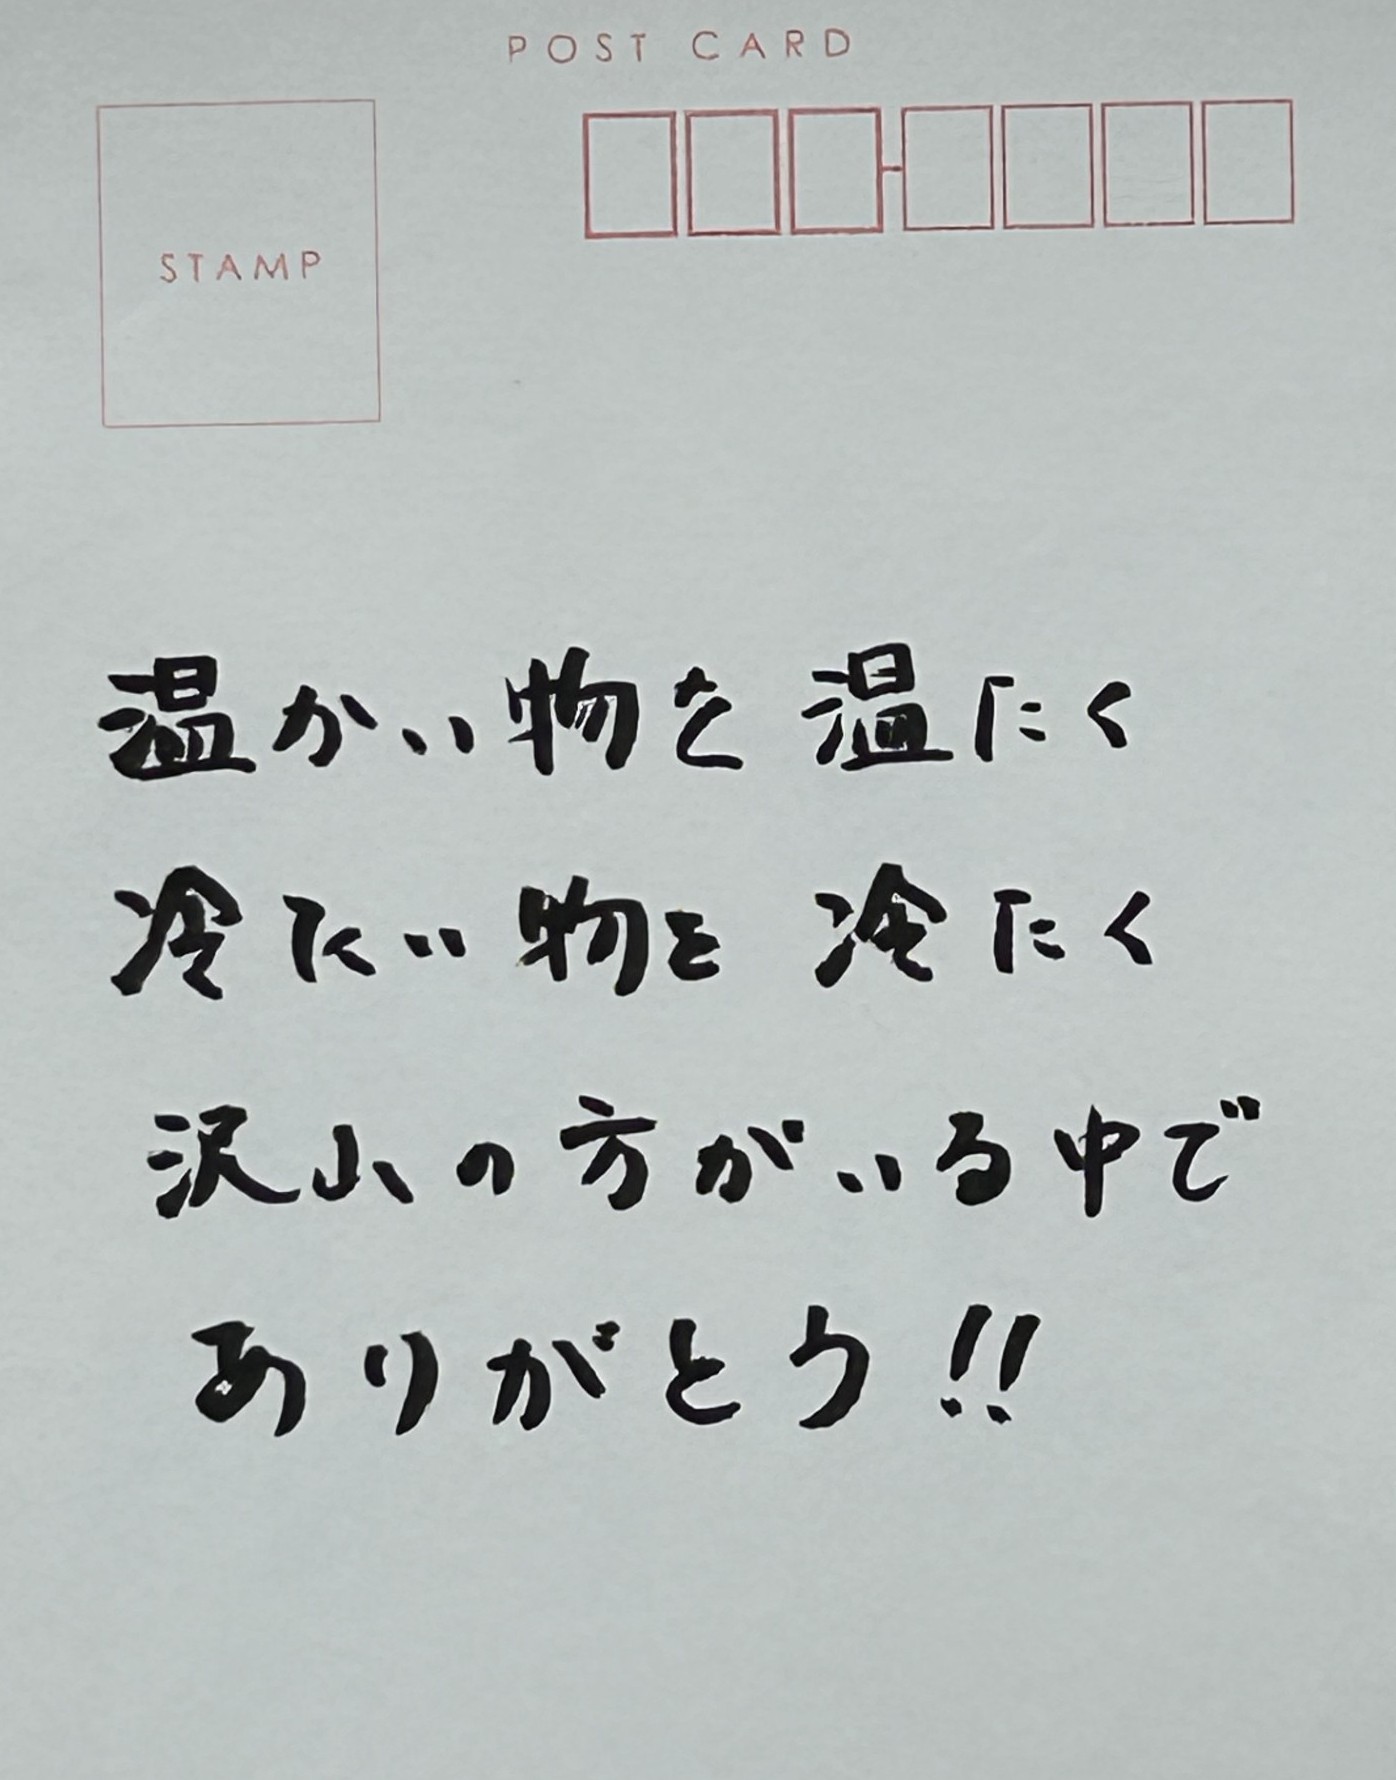 POST CARD
STAMP
温かい物を温たく
冷たい物を冷たく
沢山の方がいる中で
ありがとう!!